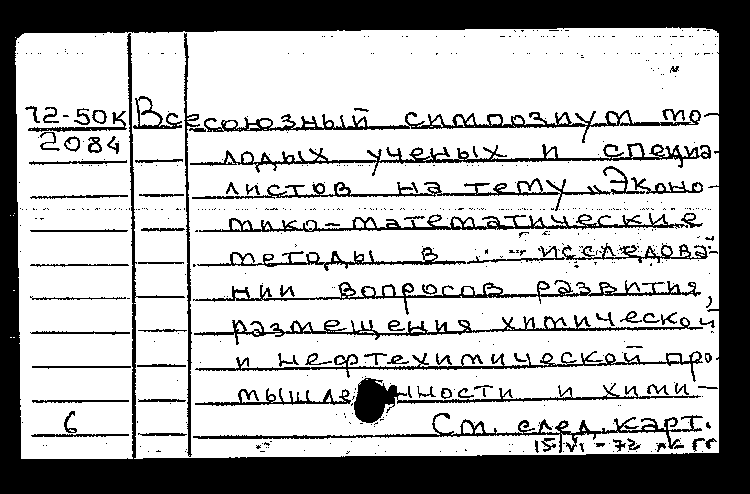 72-50К Всесоюзный симпозиум мо-
2084 лодых ученых и специа-
листов на тему „Эконо-
мико-математические
методы в исследова-
нии вопросов развития,
размещения химической
и нефтехимической про-
мышленности и хими-
6 См. след. карт.
15/VI-72